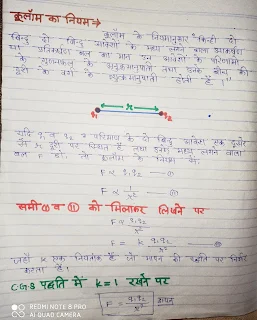 कूलॉम का नियम⇒
कूलॉम के नियमानुसार "किन्ही दो
बिन्दु दो बिन्दु आवेशों के मध्य लगने वाला आकर्षण
या प्रतिकर्षण बल का मान उन आवेशों के परिणामो
के गुणनफल के अनुक्रमानुपाती तथा उनके बीच की
दूरी के वर्ग के व्युत्क्रमानुपाती होती है।"
r
q₁ q₂
यदि q₁ व q₂ परिमाण के दो बिन्दु आवेश एक दूसरे
से r दूरी पर स्थित है तथा उनके मध्य लगने वाला
बल F हो, तो कूलॉम के नियम से,
F ∝ q₁q₂ —— ①
F ∝ 1/r² —— ②
समी ① व ② को मिलाकर लिखने पर
F ∝ q₁q₂/r²
F = k q₁q₂/r²
जहाँ k एक नियतांक है जो मापन की पद्धति पर निर्भर
करता है।
C.G.S पद्धति में k = 1 रखने पर
F = q₁q₂/r²
REDMI NOTE 8 PRO
AI QUAD CAMERA